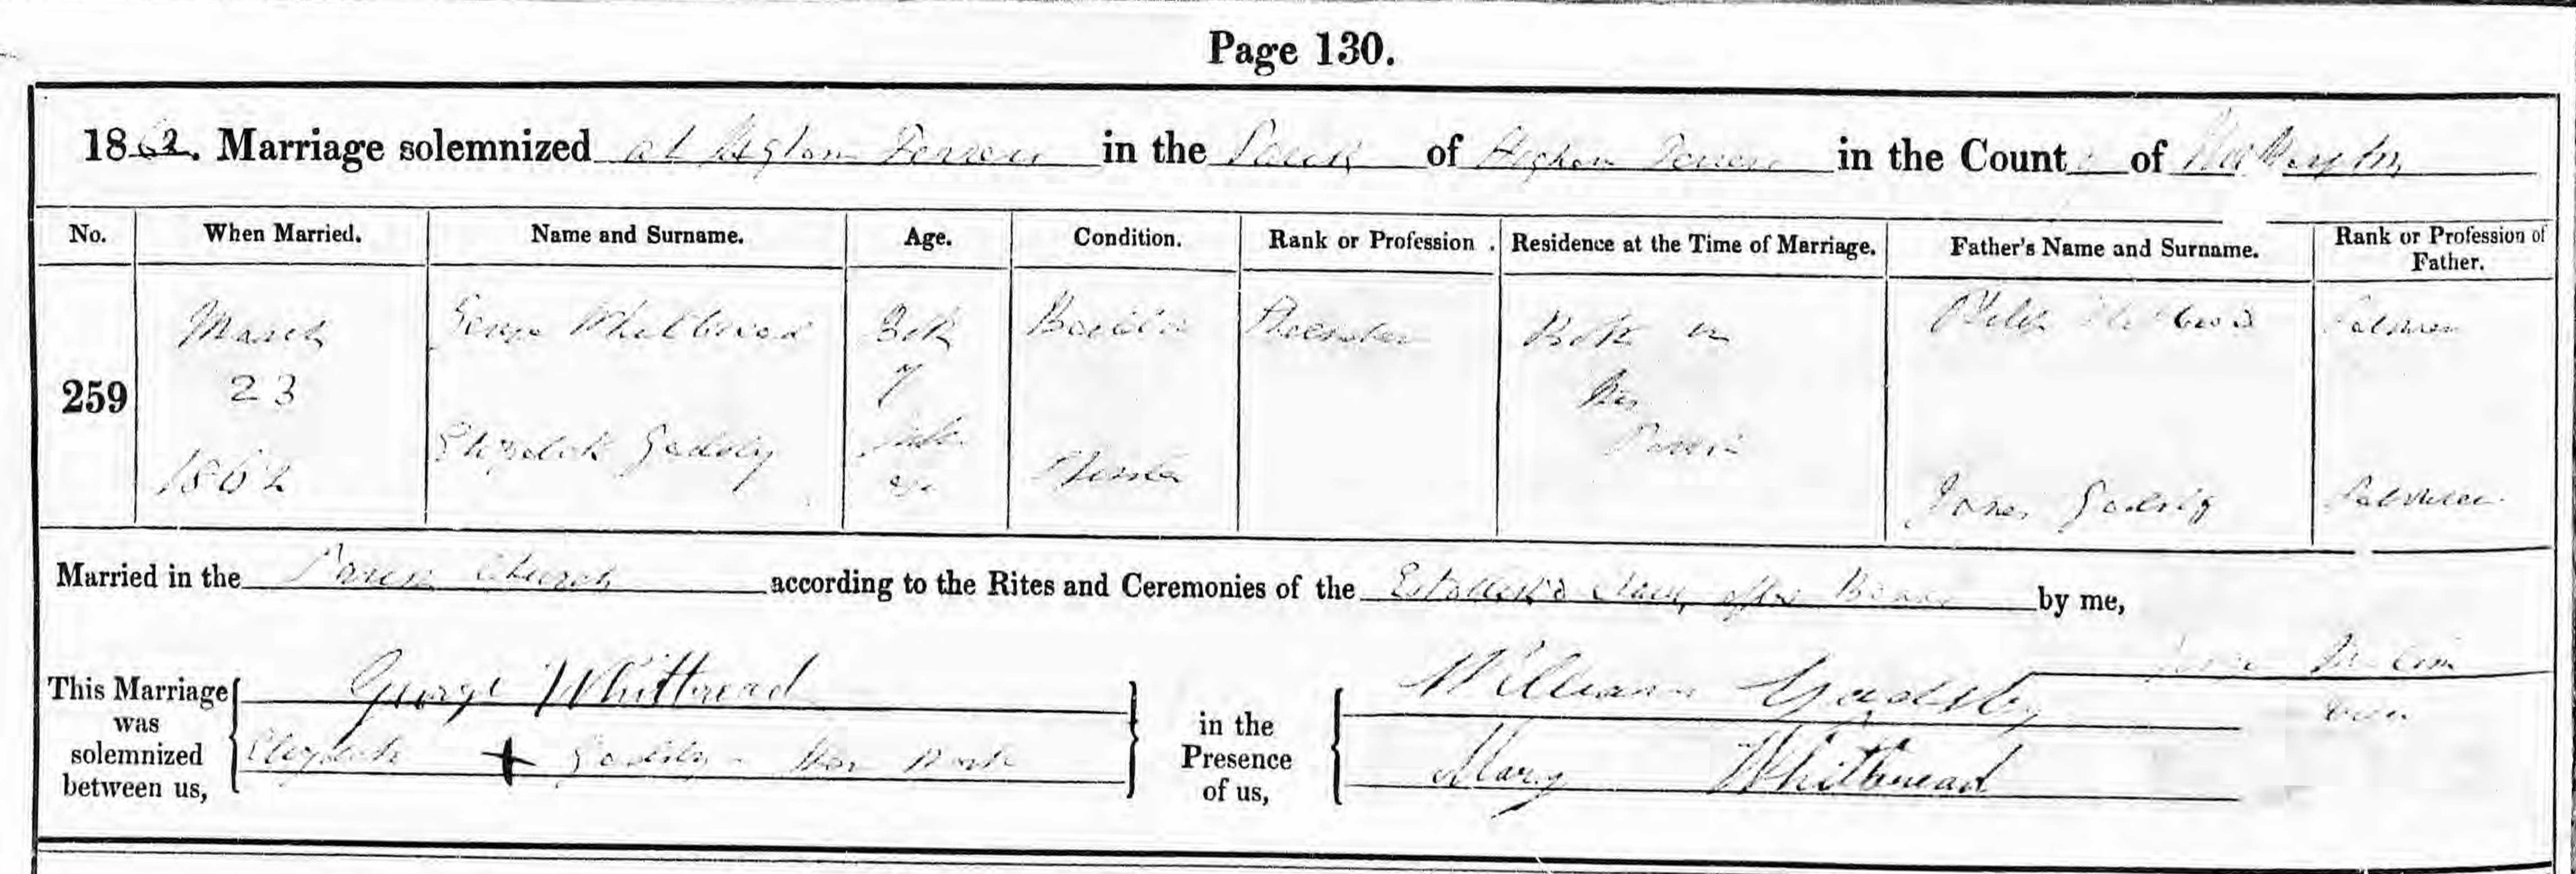 Page 130.
1862. Marriage solemnized at Higham Ferrers in the Parish of Higham Ferrers in the County of Northampton
No. When Married. Name and Surname. Age. Condition. Rank or Profession. Residence at the Time of Marriage. Father's Name and Surname. Rank or Profession of Father.
259
March 23 1862
George Whitbread Both of full age Bachelor Shoemaker Both in this Parish Whitbread Labourer
Elizabeth Gadsby Spinster James Gadsby Labourer
Married in the Parish Church according to the Rites and Ceremonies of the Established Church after Banns by me,
This Marriage was solemnized between us,
George Whitbread
Elizabeth + Gadsby Her Mark
in the Presence of us,
William Gadsby
Mary Whitbread